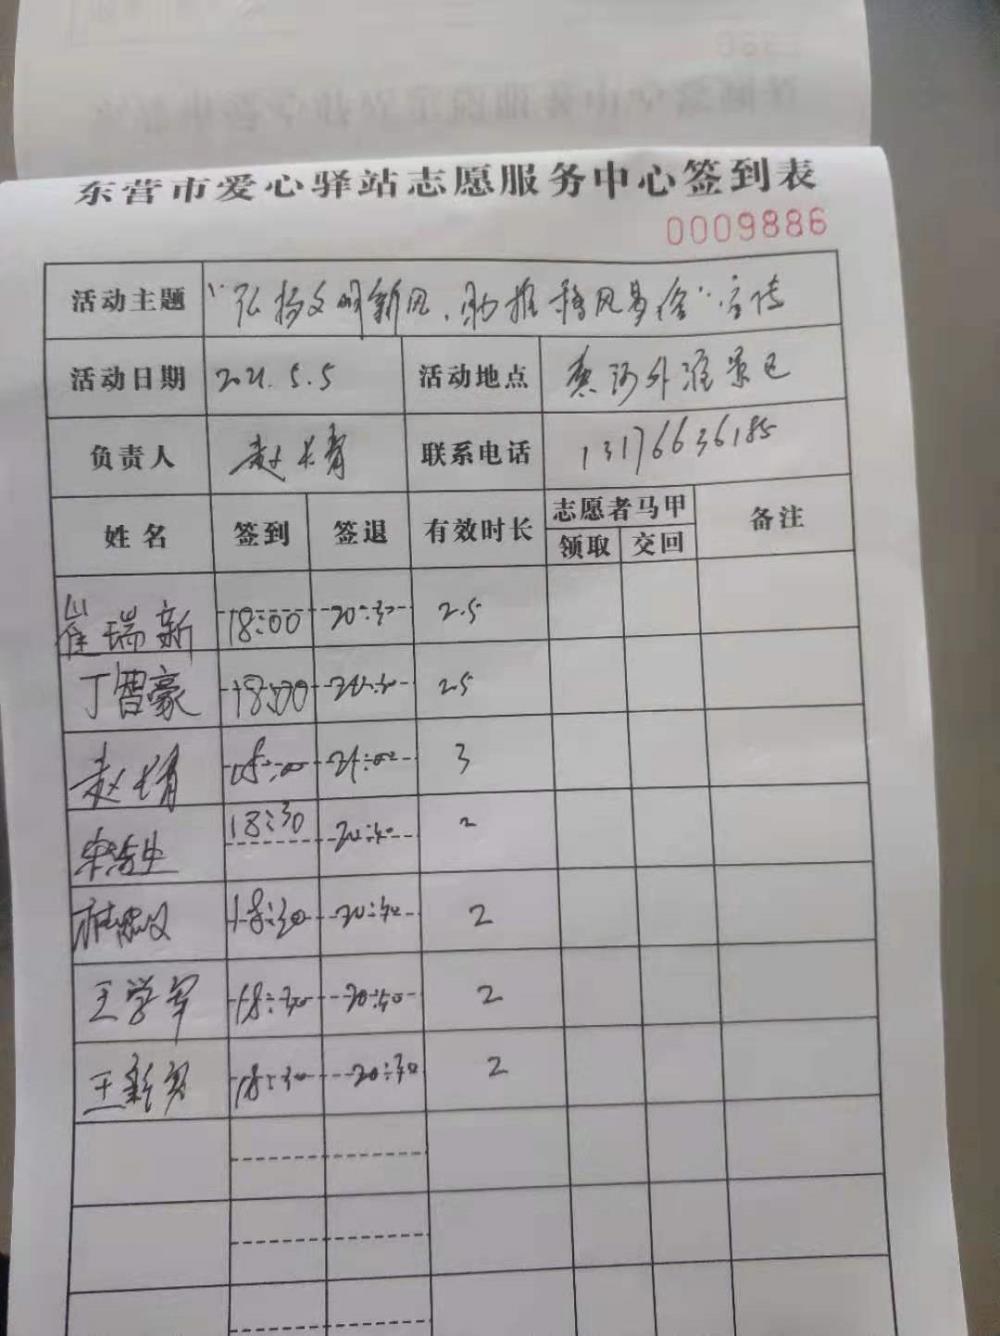 东营市爱心驿站志愿服务中心签到表
0009886
活动主题 "弘扬文明新风、助推移风易俗"宣传
活动日期 2021.5.5 活动地点 黄河外滩景区
负责人 赵倩 联系电话 13176636185
姓名 签到 签退 有效时长 志愿者马甲 备注
领取 交回
崔瑞新 18:00 20:30 2.5
丁智豪 18:00 20:30 2.5
赵倩 18:00 21:00 3
18:30 2
18:30 2
王学军 18:30 2
王新 18:30 20:30 2